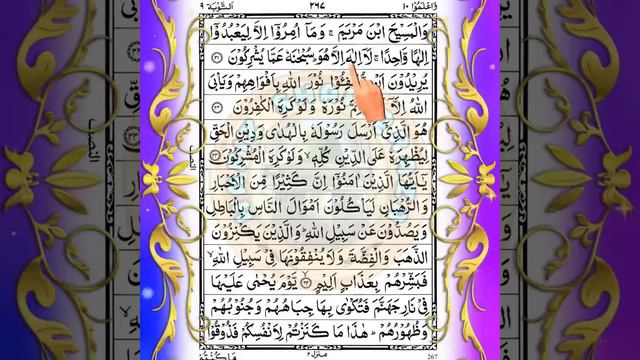 وَاعْلَمُوْٓا ١٠ ٢٦٧ اَلتَّوْبَة ٩
وَالْمَسِيْحَ ابْنَ مَرْيَمَ ۚ وَمَآ اُمِرُوْٓا اِلَّا لِيَعْبُدُوْٓا
اِلٰهًا وَّاحِدًا ۚ لَآ اِلٰهَ اِلَّا هُوَ ؕ سُبْحٰنَهٗ عَمَّا يُشْرِكُوْنَ ﴿٣١﴾
يُرِيْدُوْنَ نُوْرَ اللّٰهِ بِاَفْوَاهِهِمْ وَيَاْبَى
اللّٰهُ اِلَّآ نُوْرَهٗ وَلَوْ كَرِهَ الْكٰفِرُوْنَ ﴿٣٢﴾
هُوَ الَّذِيْٓ اَرْسَلَ رَسُوْلَهٗ بِالْهُدٰى وَدِيْنِ الْحَقِّ
لِيُظْهِرَهٗ عَلَى الدِّيْنِ كُلِّهٖ ۙ وَلَوْ كَرِهَ الْمُشْرِكُوْنَ ﴿٣٣﴾
يٰٓاَيُّهَا الَّذِيْنَ اٰمَنُوْٓا اِنَّ كَثِيْرًا مِّنَ الْاَحْبَارِ
وَالرُّهْبَانِ لَيَاْكُلُوْنَ اَمْوَالَ النَّاسِ بِالْبَاطِلِ
وَيَصُدُّوْنَ عَنْ سَبِيْلِ اللّٰهِ ؕ وَالَّذِيْنَ يَكْنِزُوْنَ
الذَّهَبَ وَالْفِضَّةَ وَلَا يُنْفِقُوْنَهَا فِيْ سَبِيْلِ اللّٰهِ ۙ
فَبَشِّرْهُمْ بِعَذَابٍ اَلِيْمٍ ﴿٣٤﴾ يَّوْمَ يُحْمٰى عَلَيْهَا
فِيْ نَارِ جَهَنَّمَ فَتُكْوٰى بِهَا جِبَاهُهُمْ وَجُنُوْبُهُمْ
وَظُهُوْرُهُمْ ؕ هٰذَا مَا كَنَزْتُمْ لِاَنْفُسِكُمْ فَذُوْقُوْا
منزل ٢ 267